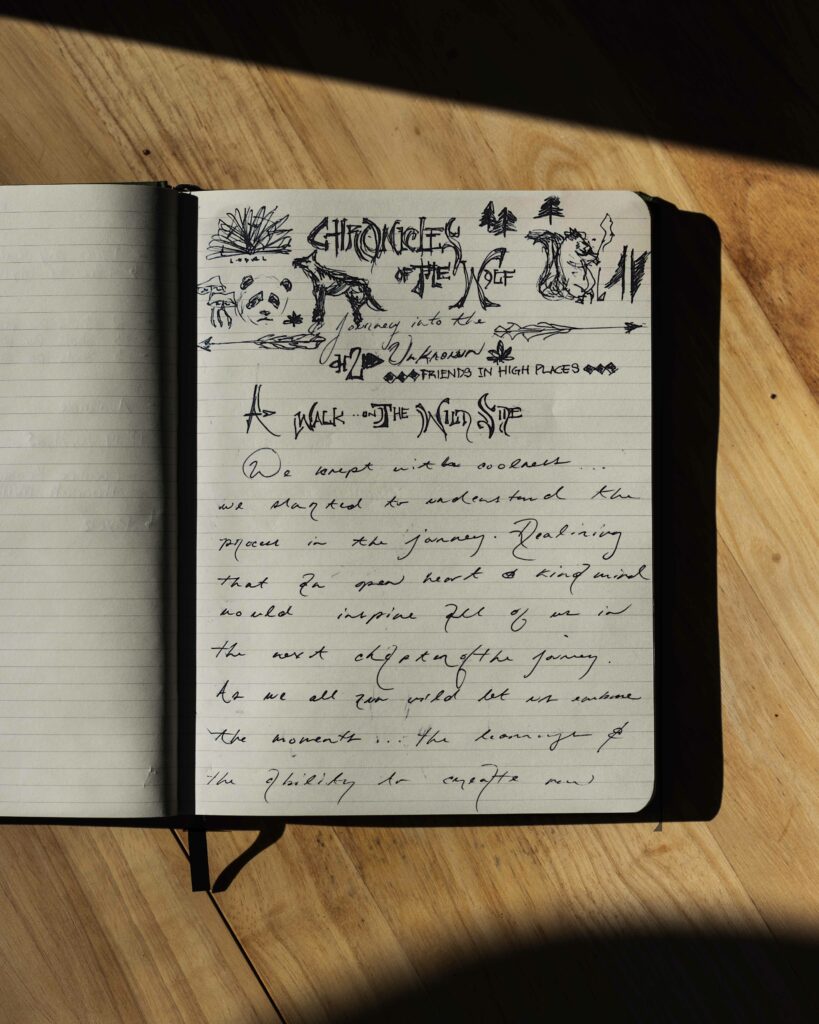 LOYAL
CHRONICLES
OF THE WOLF
Journey into the
UNKNOWN
FRIENDS IN HIGH PLACES
A WALK ON THE WILD SIDE
We with coolness...
we started to understand the
process in the journey. Realizing
that an open heart & kind mind
would inspire all of us in
the next chapter of the journey.
As we all run wild let us embrace
the moments... the learnings &
the ability to create new